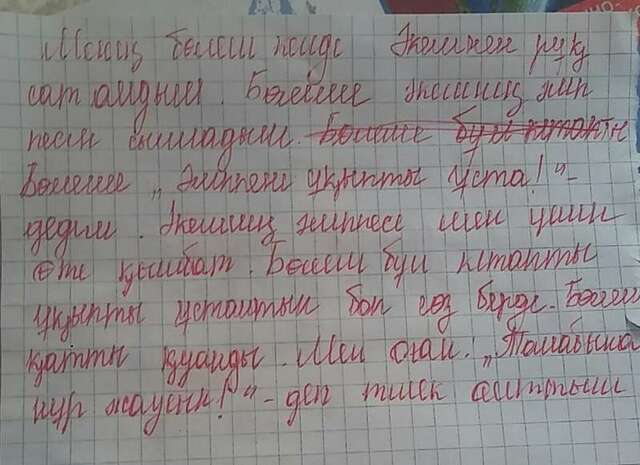 Менің бөлем келді Әкемнен рұқ
сат алдым. Бөлеме әкемнің әліп
песін сыйладым. Бөлеме бұл кітапты
Бөлеме „Әліппені ұқыпты ұста!"-
дедім. Әкемнің әліппесі мен үшін
өте қымбат. Бөлем бұл кітапты
ұқыпты ұстайтын боп сөз берді. Бөлем
қатты қуанды. Мен оған: „Талабыңа
нұр жаусын!"- деп тілек айттым